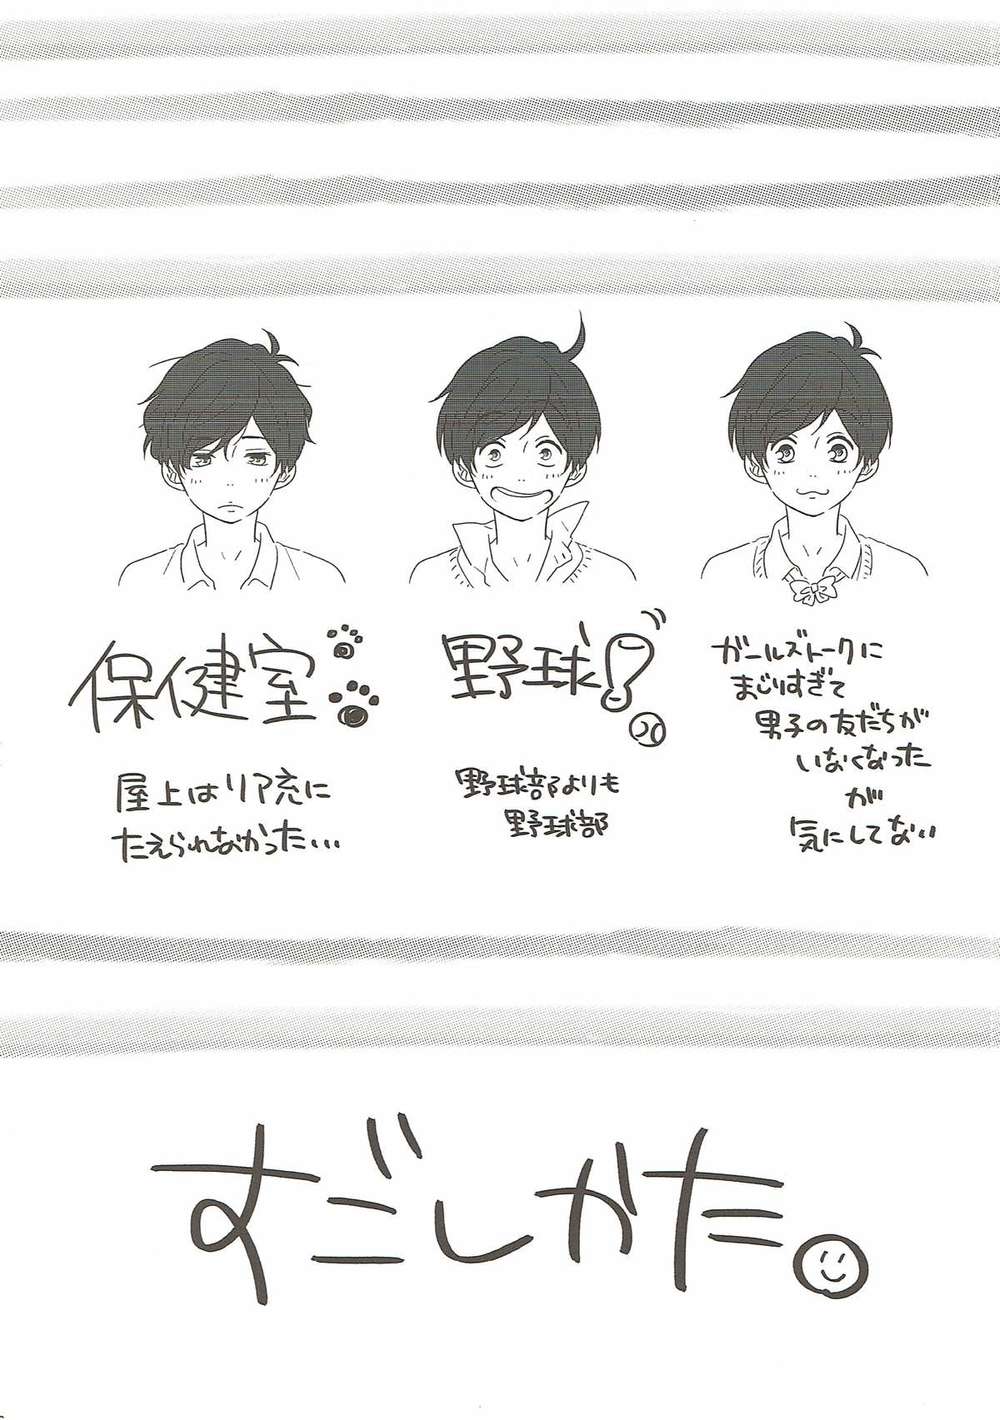 保健室
屋上はリア充に
たえられなかった…
野球!
野球部よりも
野球部
ガールズトークに
まじりすぎて
男子の友だちが
いなくなった
が
気にしてない
すごしかた。